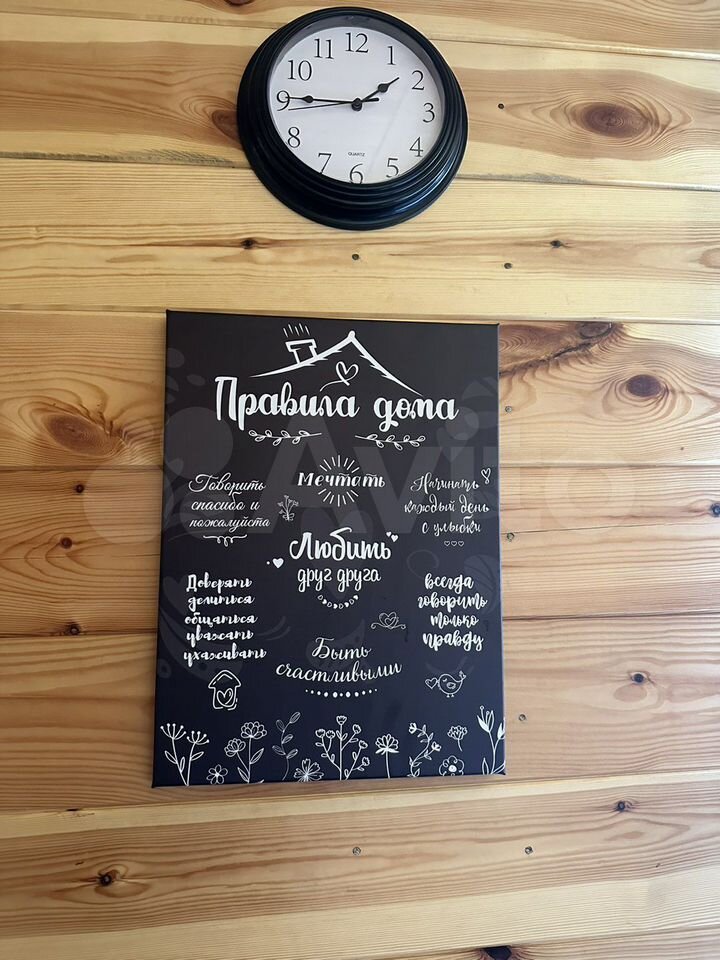 12
11 1
10 2
9 3
8 4
7 5
6
QUARTZ
Правила дома
Говорить
спасибо и
пожалуйста
Мечтать
Начинать
каждый день
с улыбки
Любить
друг друга
Доверять
делиться
общаться
уважать
ухаживать
всегда
говорить
только
правду
Быть
счастливыми
Avito